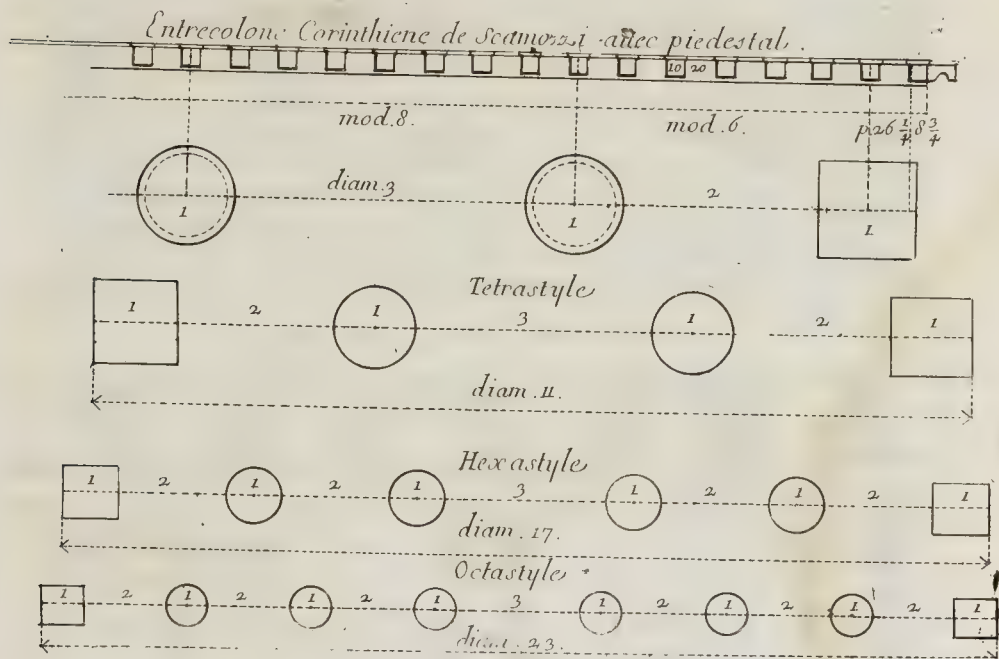 Entrecolone Corinthiene de Scamozzi avec piedestal.
10 20
mod. 8. mod. 6. p. 26 1/4 8 3/4
diam. 3 2
1 1 1
Tetrastyle
1 2 1 3 1 2 1
diam. 11.
Hexastyle
1 2 1 2 1 3 1 2 1 2 1
diam. 17.
Octastyle
1 2 1 2 1 2 1 3 1 2 1 2 1 2 1
diam. 23.